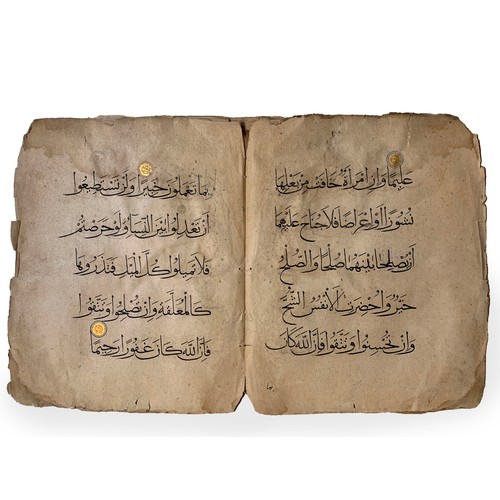 عَلِيمًا وَإِنِ امْرَأَةٌ خَافَتْ مِنْ بَعْلِهَا
نُشُوزًا أَوْ إِعْرَاضًا فَلَا جُنَاحَ عَلَيْهِمَا
أَنْ يُصْلِحَا بَيْنَهُمَا صُلْحًا وَالصُّلْحُ
خَيْرٌ وَأُحْضِرَتِ الْأَنْفُسُ الشُّحَّ
وَإِنْ تُحْسِنُوا وَتَتَّقُوا فَإِنَّ اللَّهَ كَانَ
بِمَا تَعْمَلُونَ خَبِيرًا وَلَنْ تَسْتَطِيعُوا
أَنْ تَعْدِلُوا بَيْنَ النِّسَاءِ وَلَوْ حَرَصْتُمْ
فَلَا تَمِيلُوا كُلَّ الْمَيْلِ فَتَذَرُوهَا
كَالْمُعَلَّقَةِ وَإِنْ تُصْلِحُوا وَتَتَّقُوا
فَإِنَّ اللَّهَ كَانَ غَفُورًا رَحِيمًا